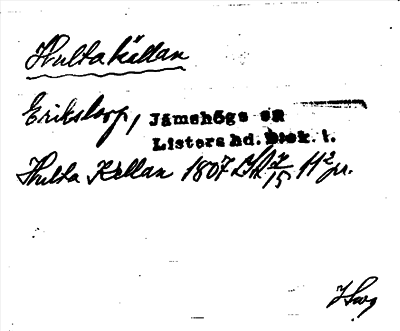 Hulta källan
Erikstorp, Jämshögs sn
Listers hd. Blek. l.
Hulta Källan 1807 LSA 2/15 112 pr.